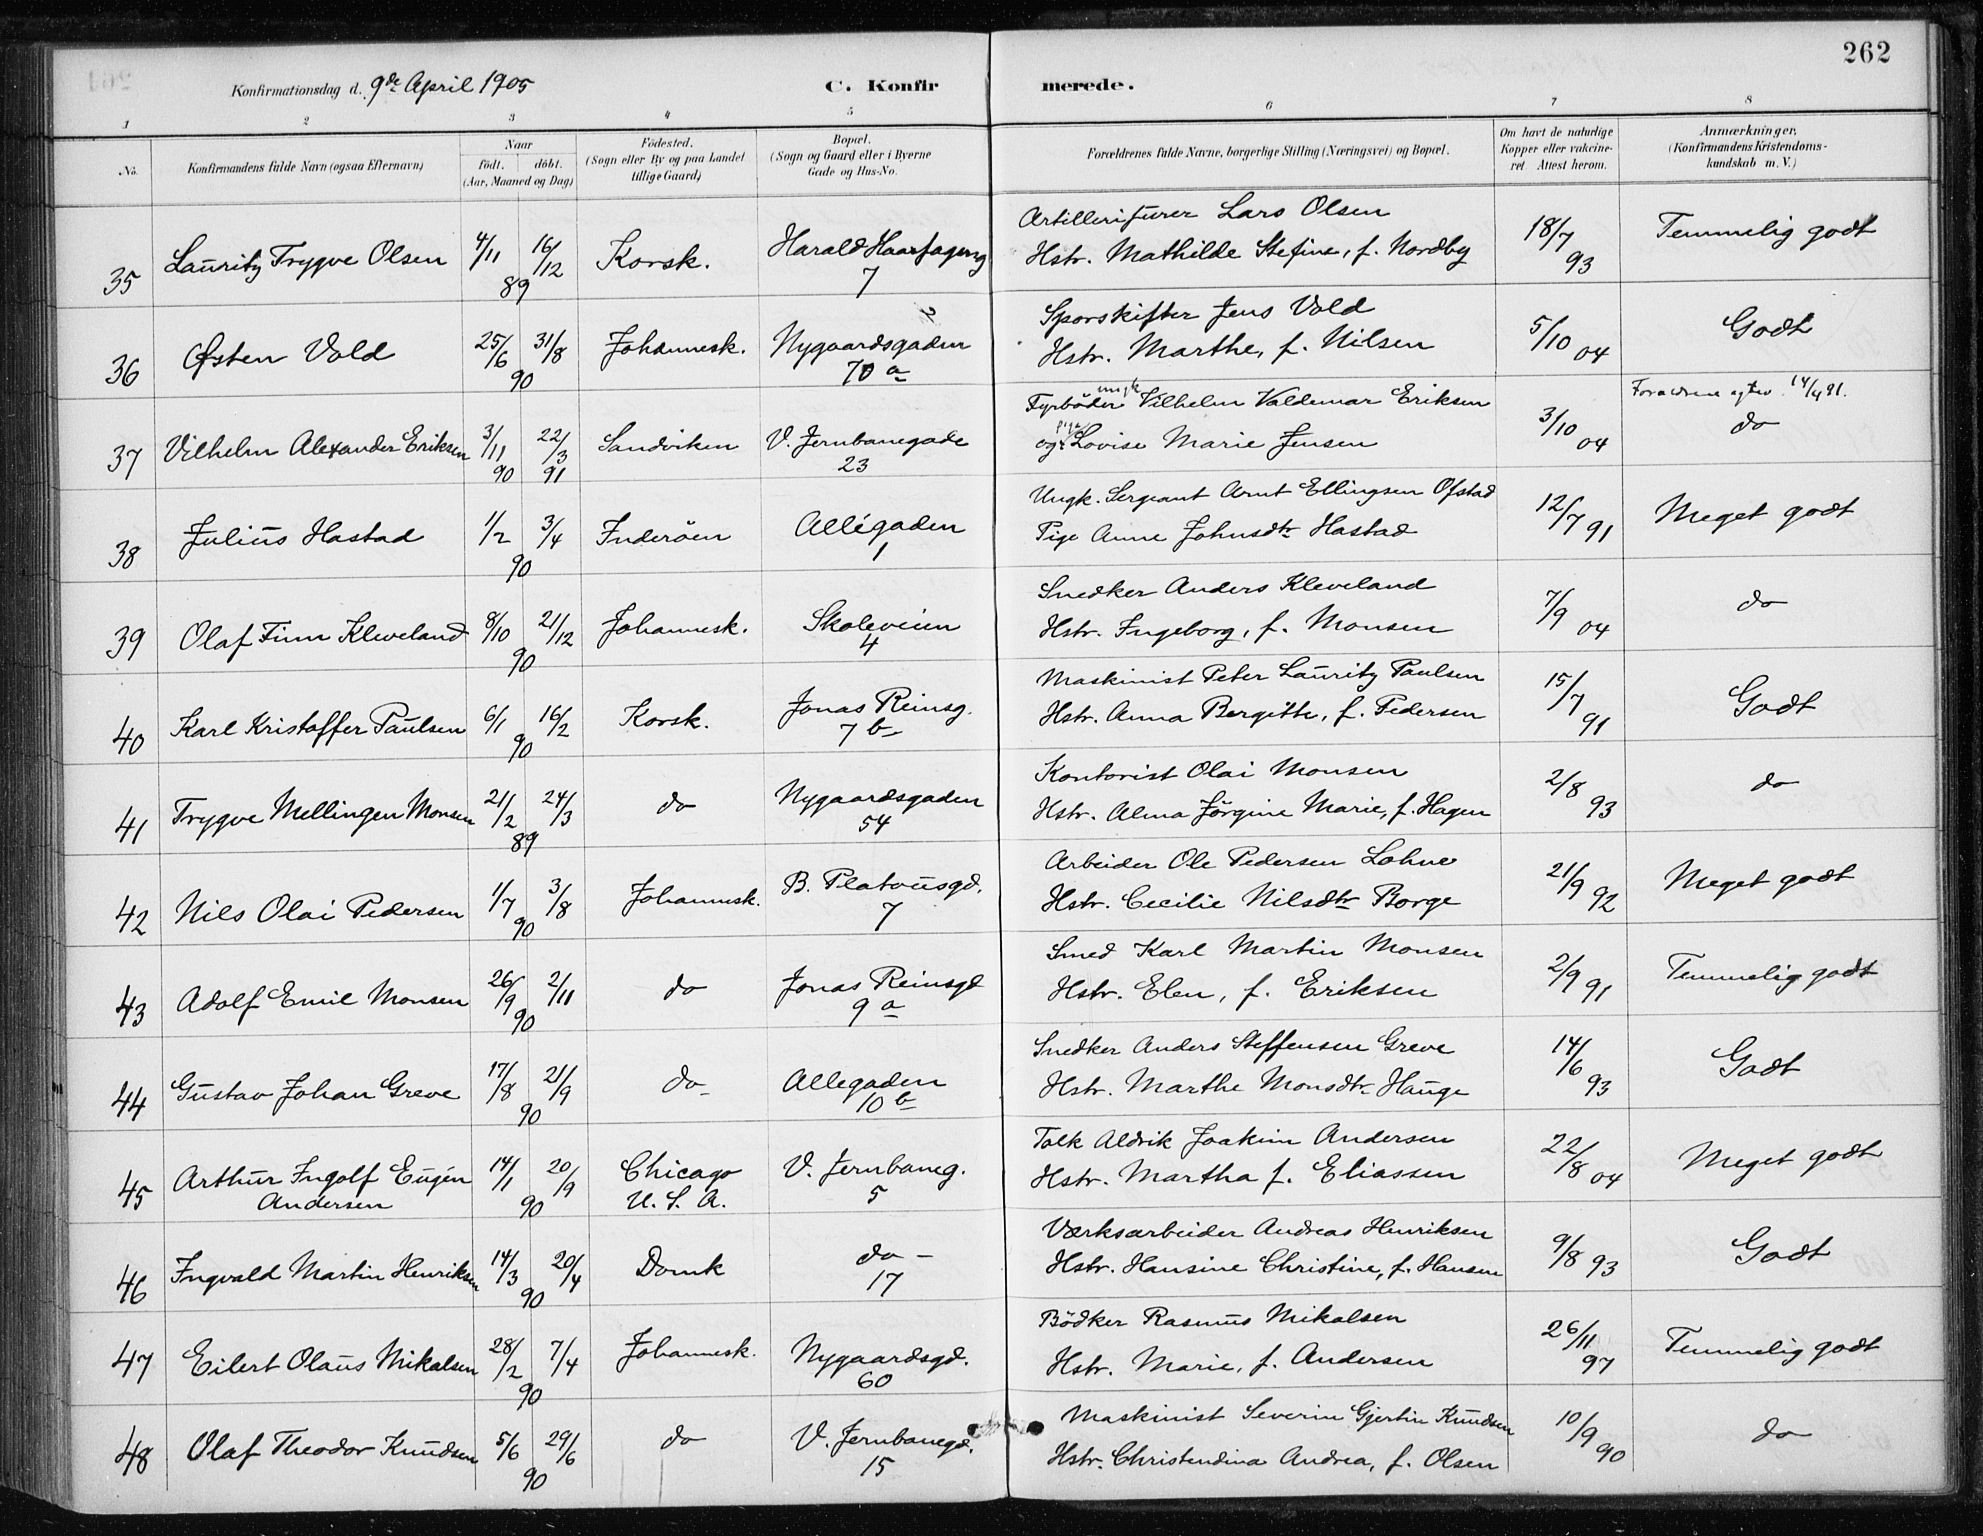 262
Konfirmationsdag d. 9de April 1905
C. Konfirmerede.
1 2 3 4 5 6 7 8
No.
Konfirmandens fulde Navn (ogsaa Efternavn)
Naar
födt. döbt.
(Aar, Maaned og Dag)
Födested.
(Sogn eller By og paa Landet
tillige Gaard)
Bopæl.
(Sogn og Gaard eller i Byerne
Gade og Hus-No.
Forældrenes fulde Navne, borgerlige Stilling (Næringsvei) og Bopæl.
Om havt de naturlige
Kopper eller vakcine-
ret Attest herom.
Anmærkninger.
(Konfirmandens Kristendoms-
kundskab m. V.)
35 Lauritz Trygve Olsen 4/11 16/12 89 Korsk. Harald Haarfagersg 7
Artillerifurer Lars Olsen
Hstr. Mathilde Stefine, f. Nordby 18/7 93 Temmelig godt
36 Østen Vold 25/6 31/8 90 Johannesk. Nygaardsgaden 70 a
Sporskifter Jens Vold
Hstr. Marthe, f. Nilsen 5/10 04 Godt
37 Vilhelm Alexander Eriksen 3/11 90 22/3 91 Sandviken V. Jernbanegade 23
Fyrböder ungk Vilhelm Valdemar Eriksen
og pige Lovise Marie Jensen 3/10 04 Forældrene egtev. 14/4 91. do
38 Julius Hastad 1/2 3/4 90 Inderöen Allégaden 1
Ungk. Sergeant Arnt Ellingsen Ofstad
Pige Anne Johnsdtr Hastad 12/7 91 Meget godt
39 Olaf Finn Kleveland 8/10 21/12 90 Johannesk. Skoleveien 4
Snedker Anders Kleveland
Hstr. Ingeborg, f. Monsen 7/9 04 do
40 Karl Kristoffer Paulsen 6/1 16/2 90 Korsk. Jonas Reinsg. 7 b
Maskinist Peter Lauritz Paulsen
Hstr. Anna Bergitte, f. Pedersen 15/7 91 Godt
41 Trygve Mellingen Monsen 21/2 24/3 89 do Nygaardsgaden 54
Kontorist Olai Monsen
Hstr. Alma Jörgine Marie, f. Hagen 2/8 93 do
42 Nils Olai Pedersen 1/7 3/8 90 Johannesk. B. Platousgd. 7
Arbeider Ole Pedersen Lohne
Hstr. Cecilie Nilsdtr Borge 21/9 92 Meget godt
43 Adolf Emil Monsen 26/9 2/11 90 do Jonas Reinsgd 9 a
Smed Karl Martin Monsen
Hstr. Elen, f. Eriksen 2/9 91 Temmelig godt
44 Gustav Johan Greve 17/8 21/9 90 do Allegaden 10 b
Snedker Anders Steffensen Greve
Hstr. Marthe Monsdtr Hauge 14/6 93 Godt
45 Arthur Ingolf Eugén Andersen 14/1 20/9 90 Chicago U. S. A. V. Jernbaneg. 5
Tolk Aldrik Joakim Andersen
Hstr. Martha f. Eliassen 22/8 04 Meget godt
46 Ingvald Martin Henriksen 14/3 20/4 90 Domk do - 17
Værksarbeider Andreas Henriksen
Hstr. Hansine Christine, f. Hansen 9/8 93 Godt
47 Eilert Olaus Mikalsen 28/2 7/4 90 Johannesk. Nygaardsgd. 60
Bödker Rasmus Mikalsen
Hstr. Marie, f. Andersen 26/11 97 Temmelig godt
48 Olaf Theodor Knudsen 5/6 29/6 90 do V. Jernbanegd. 15
Maskinist Severin Gjertin Knudsen
Hstr. Christendina Andrea, f. Olsen 10/9 90 do